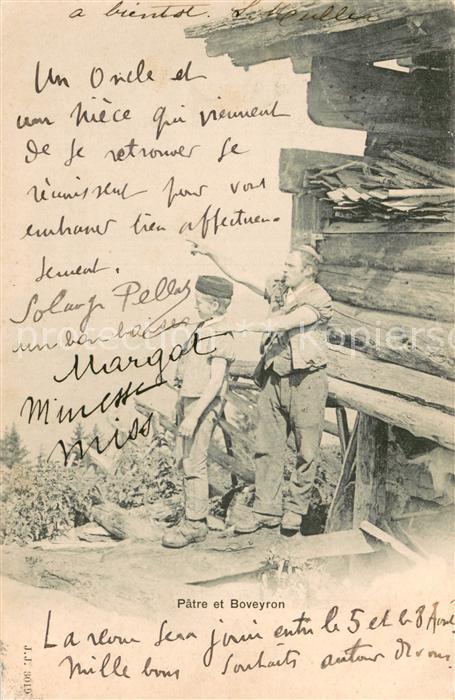 a bientot. S. Muller
Un Oncle et
une Nièce qui viennent
de se retrouver se
réunissent pour vous
embrasser bien affectueu-
sement.
Solange Pellas
un bon baiser
Margot
Minesse
Miss
Pâtre et Boveyron
La revue sera jouie entre le 5 et le 8 Avril
Mille bons souhaits autour de vous
J.J. 3015